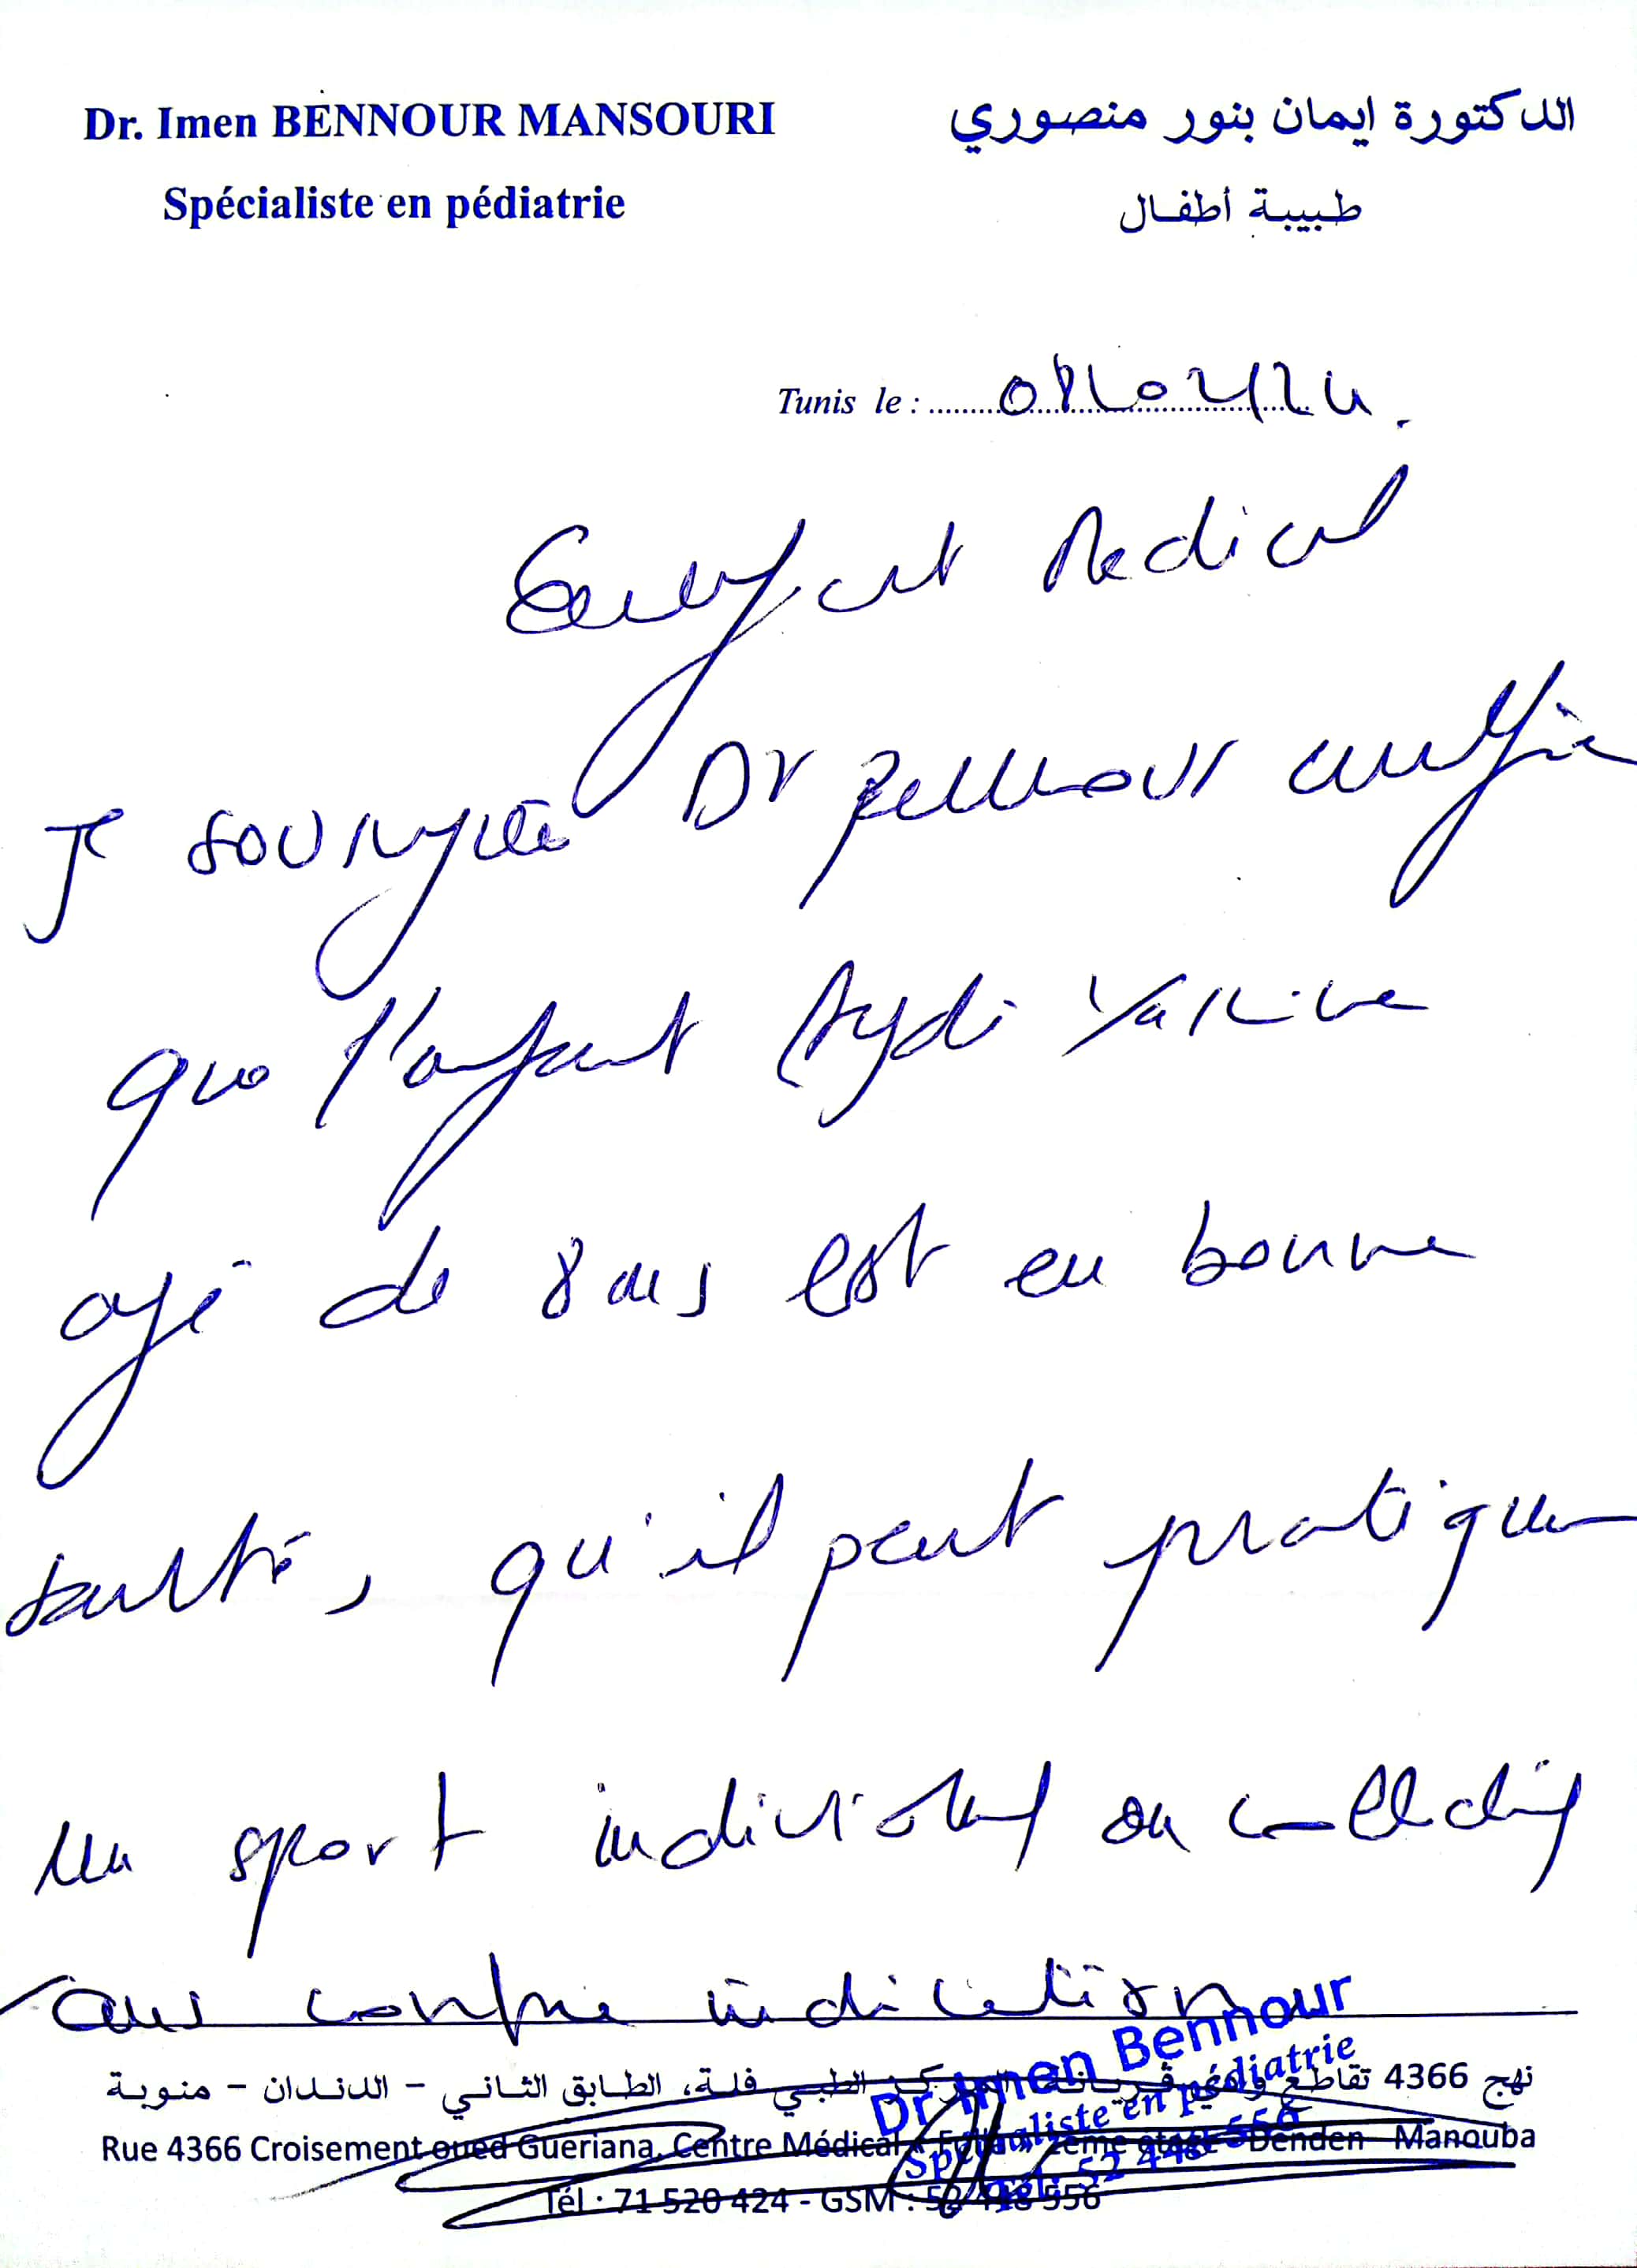 Dr. Imen BENNOUR MANSOURI
الدكتورة ايمان بنور منصوري
Spécialiste en pédiatrie
طبيبة أطفال
Tunis le : 08/02/24
Certificat Medical
Je soussignée Dr Bennour certifie
que l'enfant Aydi
agé de 8 ans est en bonne
santé, qu'il peut pratiquer
un sport individuel ou collectif
sans contre indication
Dr Imen Bennour
Spécialiste en pédiatrie
Tél: 52 448 556
نهج 4366 تقاطع وادي قريانة، المركز الطبي فلة، الطابق الثاني - الدندان - منوبة
Rue 4366 Croisement oued Gueriana, Centre Médical 2ème etage - Denden - Manouba
Tél : 71 520 424 - GSM : 52 448 556